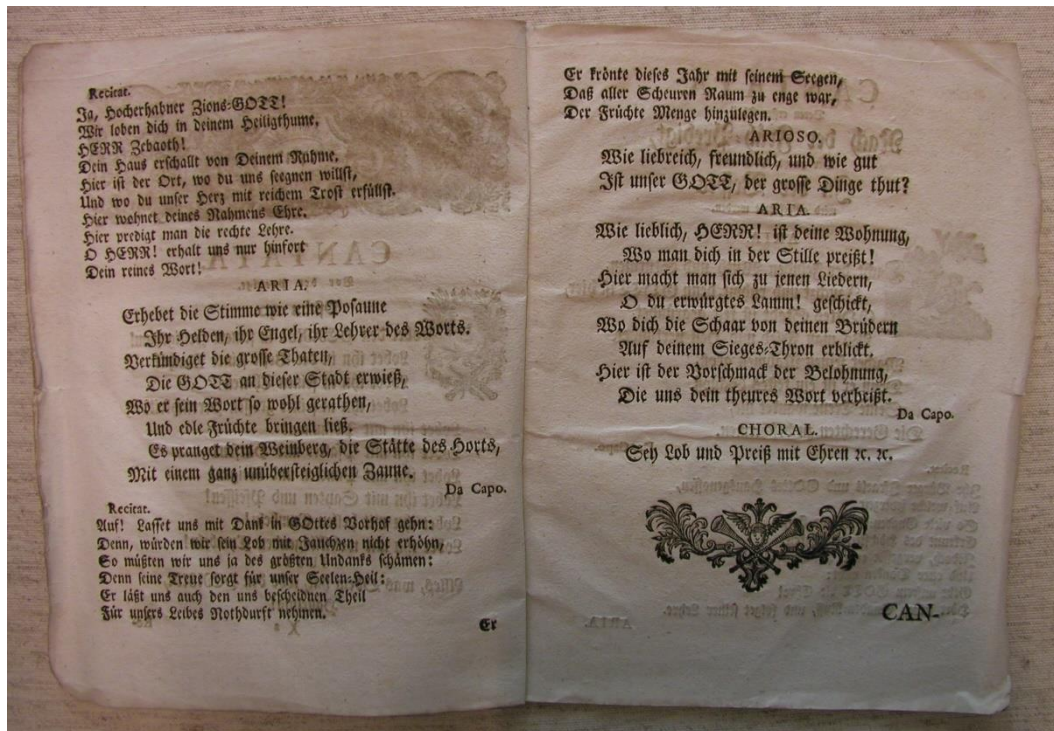 Recitat.
Ja, Hocherhabner Zions-GOTT!
Wir loben dich in deinem Heiligthume,
HERR Zebaoth!
Dein Haus erschallt von Deinem Ruhme,
Hier ist der Ort, wo du uns seegnen willst,
Und wo du unser Herz mit reichem Trost erfüllst.
Hier wohnet deines Nahmens Ehre.
Hier predigt man die rechte Lehre.
O HERR! erhalt uns nur hinfort
Dein reines Wort!
ARIA.
Erhebet die Stimme wie eine Posaune
Ihr Helden, ihr Engel, ihr Lehrer des Worts.
Verkündiget die grosse Thaten,
Die GOTT an dieser Stadt erwieß,
Wo er sein Wort so wohl gerathen,
Und edle Früchte bringen ließ.
Es pranget dein Weinberg, die Stätte des Horts,
Mit einem ganz unübersteiglichen Zaune.
Da Capo.
Recitat.
Auf! Lasset uns mit Dank in GOttes Vorhof gehn:
Denn, würden wir sein Lob mit Jauchzen nicht erhöhn,
So müßten wir uns ja des größten Undanks schämen:
Denn seine Treue sorgt für unser Seelen-Heil:
Er läßt uns auch den uns bescheidnen Theil
Für unsers Leibes Nothdurft nehmen.
Er
Er krönte dieses Jahr mit seinem Seegen,
Daß aller Scheuren Raum zu enge war,
Der Früchte Menge hinzulegen.
ARIOSO.
Wie liebreich, freundlich, und wie gut
Ist unser GOTT, der grosse Dinge thut?
ARIA.
Wie lieblich, HERR! ist deine Wohnung,
Wo man dich in der Stille preißt!
Hier macht man sich zu jenen Liedern,
O du erwürgtes Lamm! geschickt,
Wo dich die Schaar von deinen Brüdern
Auf deinem Sieges-Thron erblickt.
Hier ist der Vorschmack der Belohnung,
Die uns dein theures Wort verheißt.
Da Capo.
CHORAL.
Sey Lob und Preiß mit Ehren ꝛc. ꝛc.
CAN-